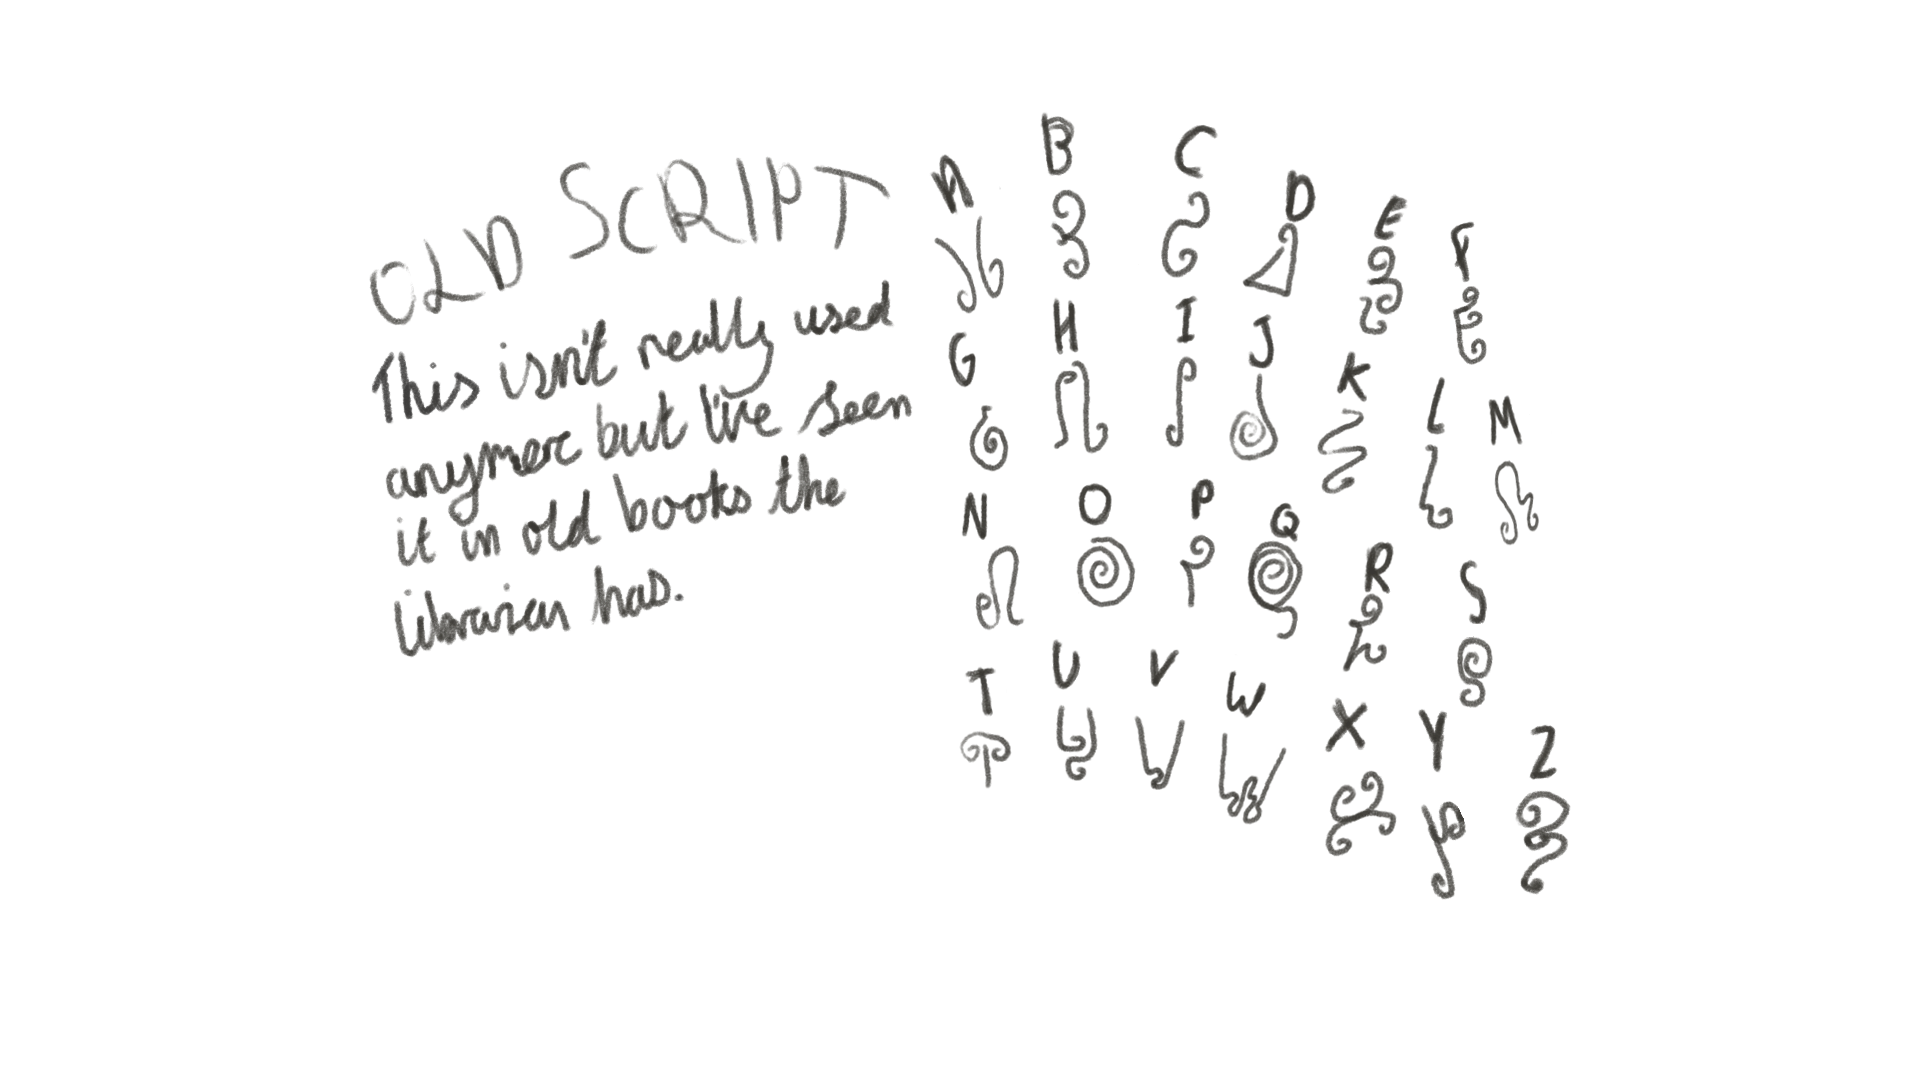 OLD SCRIPT
This isn't really used
anymore but I've seen
it in old books the
librarian has.
A B C D E F
G H I J K L M
N O P Q R S
T U V W X Y Z